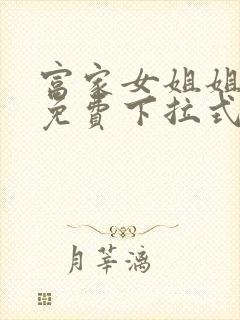 富家女姐姐
免費下拉式
月莘漓